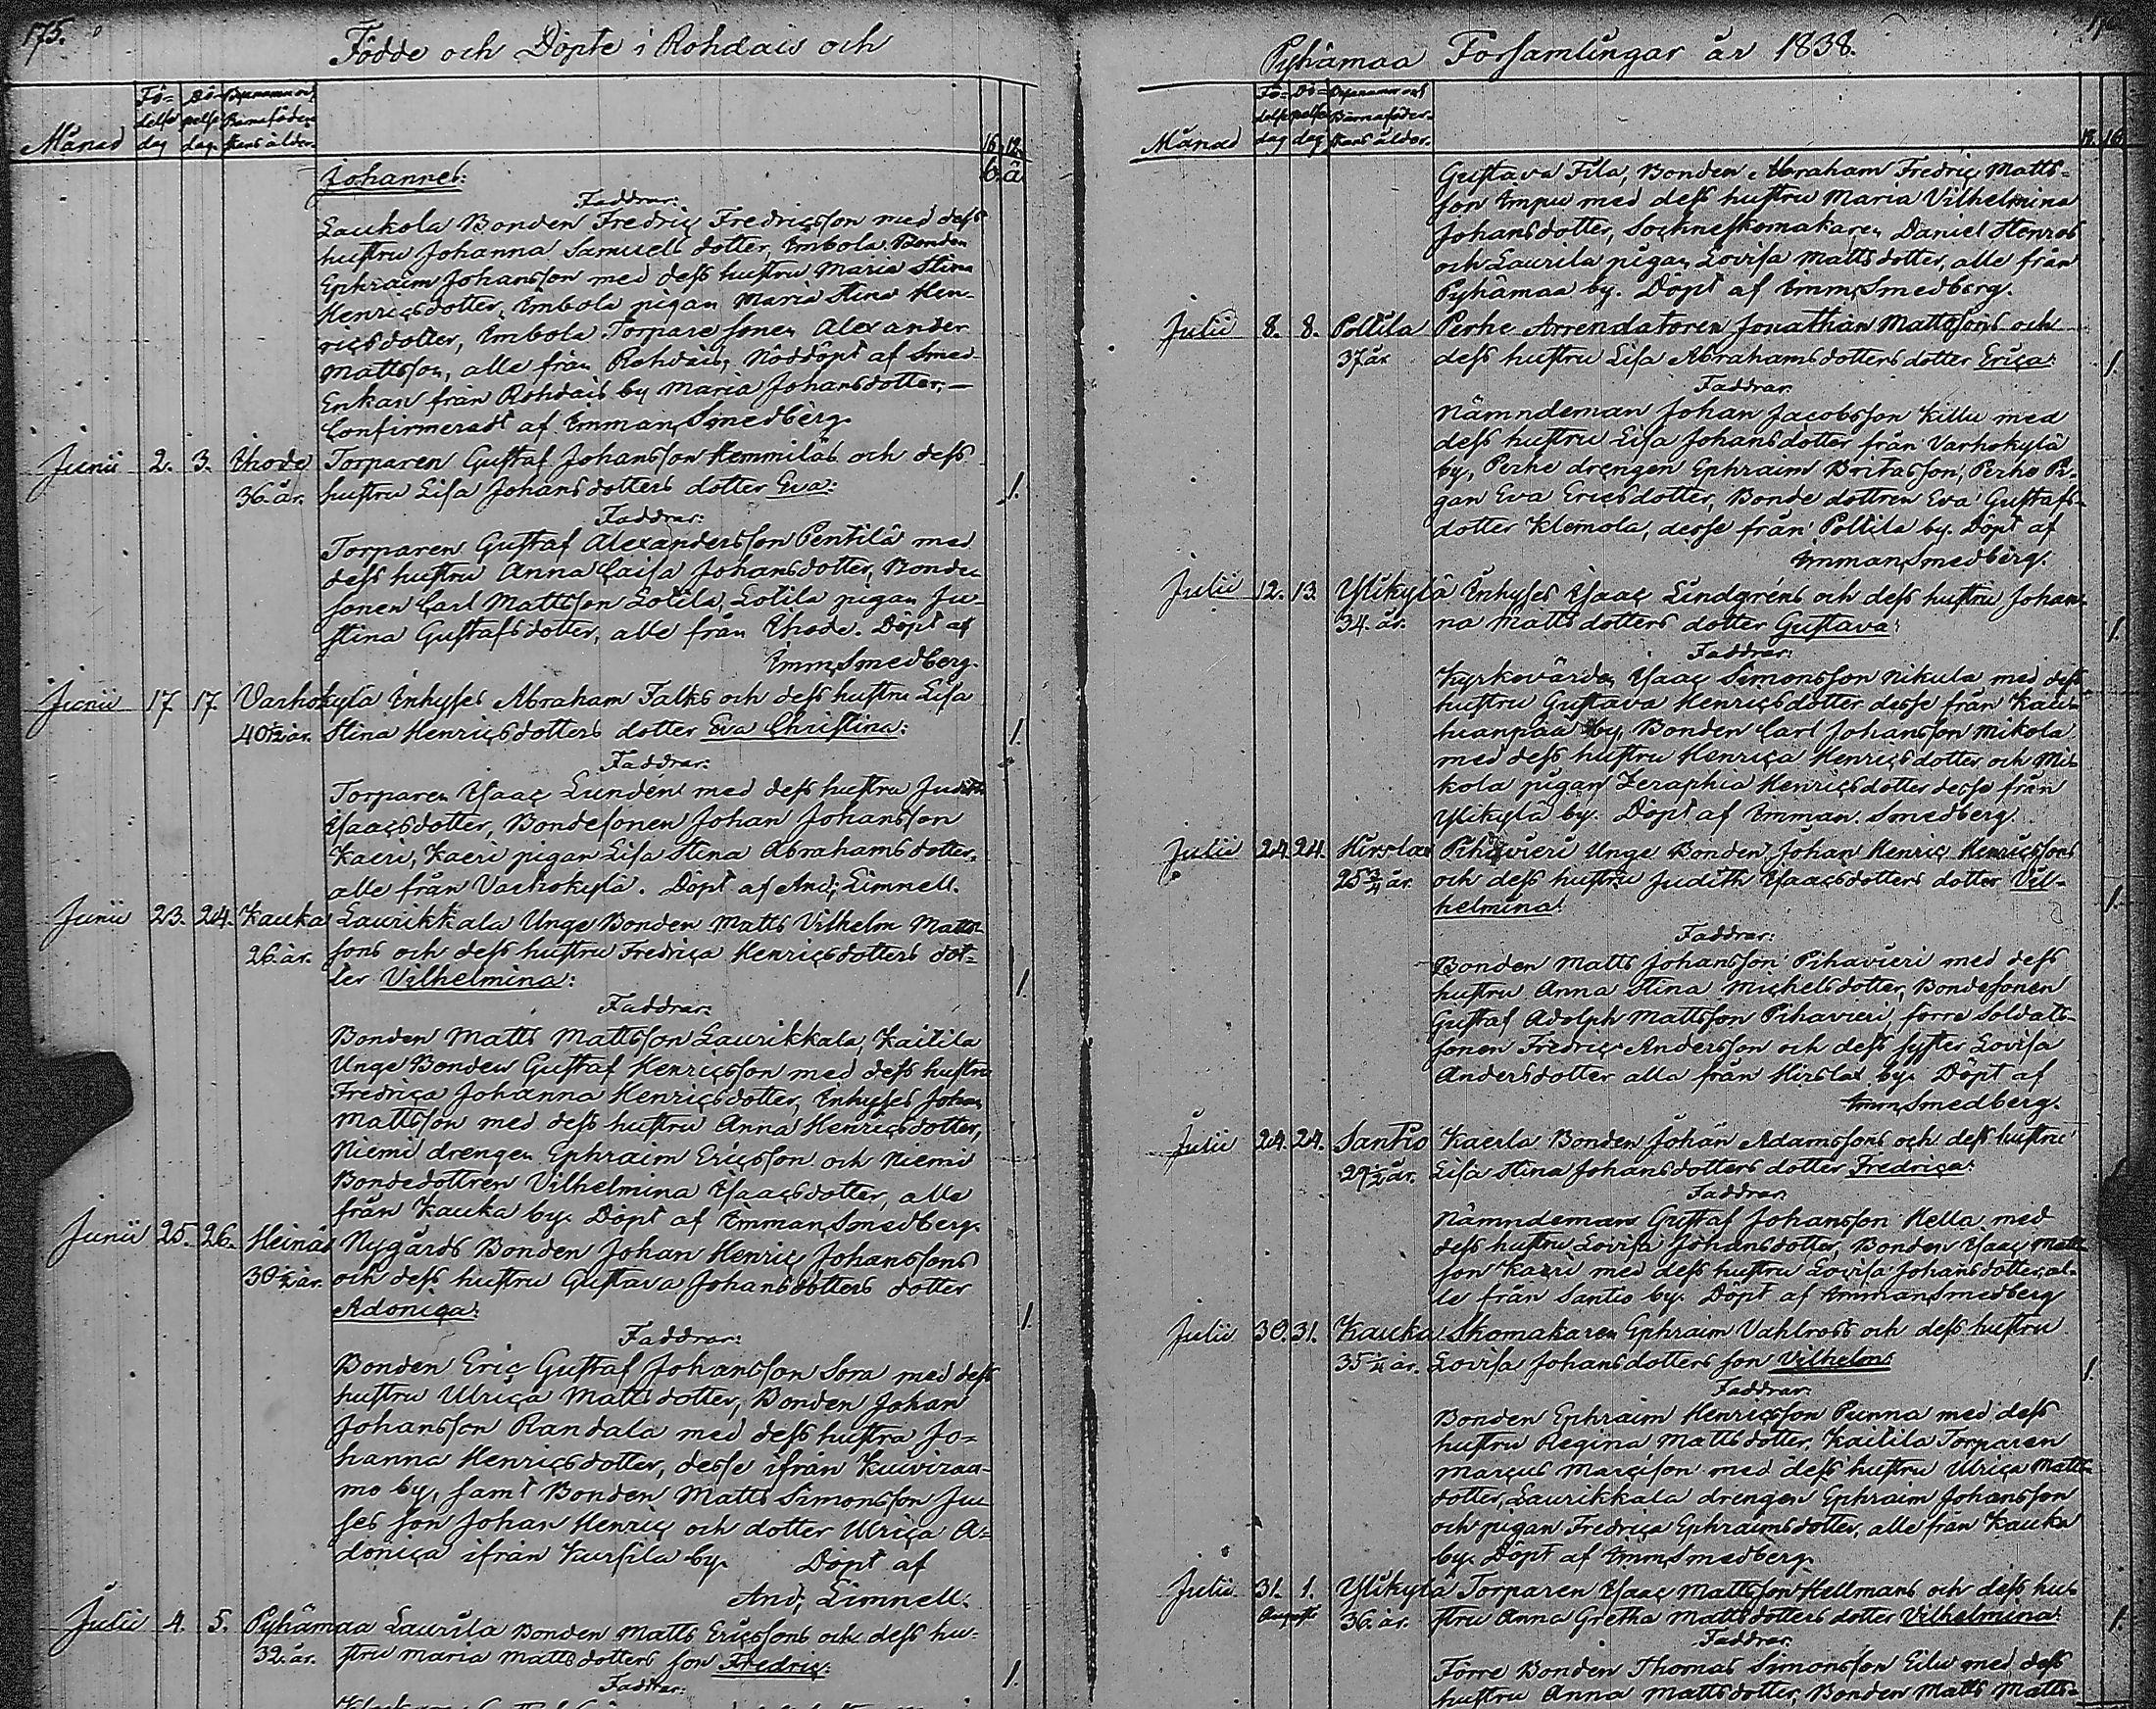 175.
Födde och Döpte i Rohdais och
Månad
Fö-
delse
dag
Dö-
pelse
dag.
Byanamn och
Barnaföder-
skans ålder.
16. 12.
6. a.
Johannes:
Faddrar:
Laukola Bonden Fredriç Fredriçsson med dess
hustru Johanna Samuels dotter, Imbola Bonden
Ephraim Johansson med dess hustru Maria Stina
Henriçsdotter, Imbola pigan Maria Stina Hen-
riçsdotter, Imbola Torpare sonen Alexander
Mattsson, alle från Rohdais, Nöddöpt af Smed
Enkan från Rohdais by Maria Johansdotter, —
Confirmeradt af Imman, Smedberg.
Junii 2. 3. Ihode Torparen Gustaf Johansson Hemmiläs och dess
36. år. hustru Lisa Johansdotters dotter Eva: 1.
Faddrar:
Torparen Gustaf Alexandersson Pentilä med
dess hustru Anna Caisa Johansdotter, Bonde
sonen Carl Mattsson Lotila, Lotila pigan Ju-
stina Gustafsdotter, alle från Ihode. Döpt af
Imm, Smedberg.
Junii 17 17 Varhokyla Inhyses Abraham Falks och dess hustru Lisa
40 1/2 år. Stina Henriçsdotters dotter Eva Christina: 1.
Faddrar:
Torparen Ysaaç Lundén med dess hustru Judith
Ysaaçsdotter, Bondesonen Johan Johansson
Kaeri, Kaeri pigan Lisa Stina Abrahamsdotter,
alle från Varhokylä. Döpt af And; Limnell.
Junii 23. 24. Kauka Laurikkala Unge Bonden Matts Vilhelm Matts-
26. år. sons och dess hustru Fredriça Henriçsdotters dot-
ter Vilhelmina: 1.
Faddrar:
Bonden Matts Mattsson Laurikkala, Kailila
Unge Bonden Gustaf Henriçsson med dess hustru
Fredriça Johanna Henriçsdotter, Inhyses Johan
Mattsson med dess hustru Anna Henriçsdotter,
Niemi drengen Ephraim Ericsson och Niemi
Bondedottren Vilhelmina Ysaaçsdotter, alle
från Kauka by. Döpt af Imman, Smedberg.
Junii 25. 26. Heinäs Nygårds Bonden Johan Henriç Johanssons
år. och dess hustru Gustava Johansdotters dotter
Adoniça: 1.
Faddrar:
Bonden Eriç Gustaf Johansson Sora med dess
hustru Ulriça Mattsdotter, Bonden Johan
Johansson Randala med dess hustra Jo-
hanna Henriçsdotter, desse ifrån Kuivraa-
mo by, samt Bonden Matts Simonsson Ju-
ses son Johan Henriç och dotter Ulriça A-
doniça ifrån Kursila by. Döpt af
And; Limnell.
Julii 4. 5. Pyhämaa Laurila Bonden Matts Ericssons och dess hu-
32. år. stru Maria Mattsdotters son Fredriç: 1.
Faddrar:
Pyhämaa Forsamlingar år 1838.
Månad
Fö-
delse
dag
Dö-
pelse
dag
Byanamn och
Barnaföder-
skans ålder.
18. 16.
Gustava Fila, Bonden Abraham Fredriç Matts-
son Impu med dess hustru Maria Vilhelmina
Johansdotter, Sochneskomakaren Daniel Henros
och Laurila pigan Lovisa Mattsdotter, alle från
Pyhämaa by. Döpt af Imm, Smedberg.
Julii 8. 8. Poltila Perhe Arrendatoren Jonathan Mattssons och
37 år dess hustru Lisa Abrahamsdotters dotter Eriça: 1.
Faddrar
Nämndeman Johan Jacobsson Killu med
dess hustru Lisa Johansdotter från Varhokylä
by, Perhe drengen Ephraim Britasson, Perhe Pi-
gan Eva Ericsdotter, Bonde dottren Eva Gustafs-
dotter Klemola, desse från Poltila by. Döpt af
Imman, Smedberg.
Julii 12. 13. Ylikylä Inhyses Ysaaç Lindgréns och dess hustru Johan-
34. år. na Mattsdotters dotter Gustava: 1.
Faddrar:
Kyrkovärden Ysaaç Simonsson Nikula med dess
hustru Gustava Henriçsdotter desse från Kau-
huanpää by, Bonden Carl Johansson Mikola
med dess hustru Henriça Henriçsdotter och Mi-
kola pigan Zeraphia Henriçsdotter desse från
Ylikylä by. Döpt af Imman. Smedberg.
Julii 24. 24. Hirslax Pihavieri Unge Bonden Johan Henriç Henriçssons
25 3/4 år. och dess hustru Judith Ysaaçsdotters dotter Vil-
helmina: 1.
Faddrar:
Bonden Matts Johansson Pihavieri med dess
hustru Anna Stina Michelsdotter, Bondesonen
Gustaf Adolph Mattsson Pihavieri, förre Soldats-
sonen Fredriç Andersson och dess syster Lovisa
Andersdotter alla från Hirslax by. Döpt af
Imm, Smedberg.
Julii 24. 24. Santio Kaerla Bonden Johan Adamssons och dess hustru
år. Lisa Stina Johansdotters dotter Fredriça: 1.
Faddrar
Nämndeman Gustaf Johansson Hella med
dess hustru Lovisa Johansdotter, Bonden Ysaaç Matts-
son Kaeri med dess hustru Lovisa Johansdotter, al-
le från Santio by. Döpt af Imman, Smedberg
Julii 30. 31. Kauka Skomakaren Ephraim Vahlroos och dess hustru
35 1/4 år. Lovisa Johansdotters son Vilhelm: 1.
Faddrar:
Bonden Ephraim Henriçsson Punna med dess
hustru Regina Mattsdotter, Kailila Torparen
Marçus Marçison med dess hustru Ulriça Matts-
dotter, Laurikkala drengen Ephraim Johansson
och pigan Fredriça Ephraimsdotter, alle från Kauka
by. Döpt af Imm, Smedberg.
Julii 31. 1. Ylikylä Torparen Ysaaç Mattsson Hellmans och dess hu-
Augusti 36. år. stru Anna Gretha Mattsdotters dotter Vilhelmina: 1.
Faddrar.
Förre Bonden Thomas Simonsson Eilu med dess
hustru Anna Mattsdotter, Bonden Matts Matts-